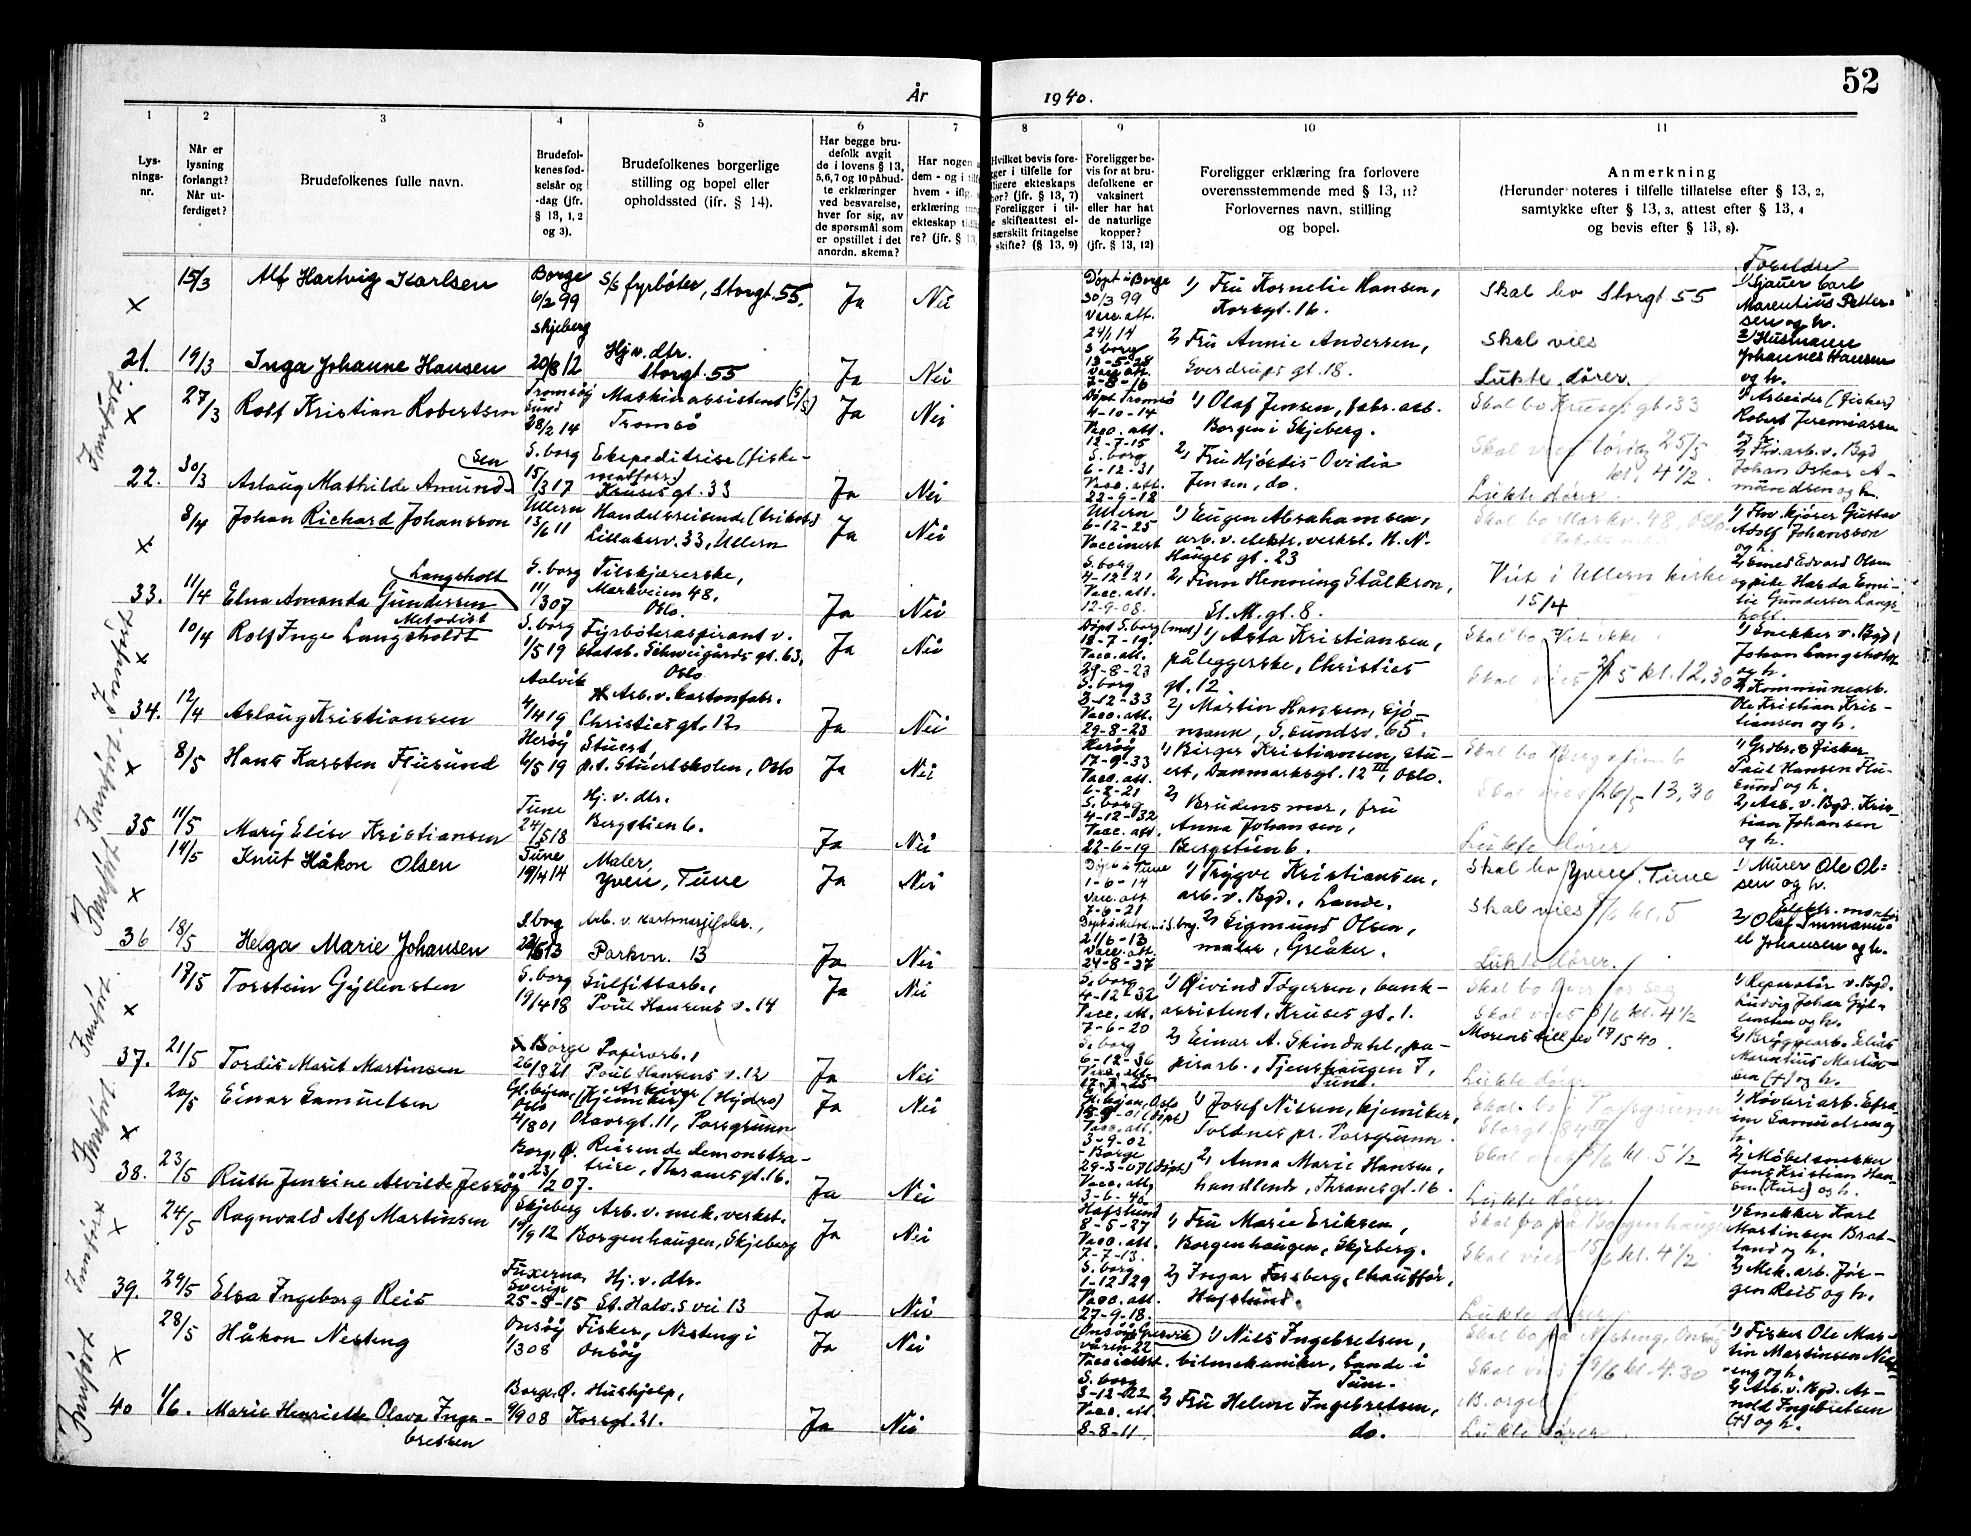 52
År 1940.
1 2 3 4 5 6 7 8 9 10 11
Lys-
nings-
nr.
Når er
lysning
forlangt?
Når ut-
ferdiget?
Brudefolkenes fulle navn.
Brudefol-
kenes fød-
selsår og
-dag (jfr.
§ 13, 1, 2
og 3).
Brudefolkenes borgerlige
stilling og bopel eller
opholdssted (ifr. § 14).
Har begge bru-
defolk avgit
de i lovens § 13,
5,6,7 og 10 påbud-
te erklæringer
ved besvarelse,
hver for sig, av
de spørsmål som
er opstillet i det
anordn. skema?
Har nogen
dem - og i
hvem -
erklæring
ekteskap
re? (jfr. § 13,
Hvilket bevis fore-
gger i tilfelle for
ligere ekteskaps
hør? (jfr. § 13, 7)
Foreligger i til-
le skifteattest el-
særskilt fritagelse
skifte? (§ 13, 9)
Foreligger be-
vis for at bru-
defolkene er
vaksinert
eller har hat
de naturlige
kopper?
(jfr. § 13, 12)
Foreligger erklæring fra forlovere
overensstemmende med § 13, 11?
Forlovernes navn, stilling
og bopel.
Anmerkning
(Herunder noteres i tilfelle tillatelse efter § 13, 2,
samtykke efter § 13, 3, attest efter § 13, 4
og bevis efter § 13, 8).
x 15/3 Alf Hartvig Karlsen
Borge
6/2 99
S/S fyrbøter, Storgt. 55.
Ja Nei
Døpt i Borge
30/3 99
Vacc. att.
1) Fru Kornelie Hansen,
Korsgt. 16.
Skal bo Storgt 55
Foreldre
Marentius Petter-
sen og h.
21. 19/3 Inga Johanne Hansen
Skjeberg
20/8 12
Hj. v. dtr.
Storgt. 55
Ja Nei
S. borg
Vacc. att.
7-8-16
2) Fru Annie Andersen,
Sverdrups gt. 18.
Skal vies
Lukte dører.
2) Husmann
Johannes Hansen
og h.
Innført.
x 27/3 Rolf Kristian Robertsen
28/2 14
Maskinassistent (S/S)
Tromsø
Ja Nei
Døpt Tromsø
4-10-14
Vacc. att.
12-7-15
1) Olaf Jensen, fabr. arb.
Borgen i Skjeberg.
Skal bo Kruses gt. 33
Skal vies lørdag 25/5
kl. 4 1/2
1) Arbeider (fisker)
Robert Jeremiassen
22. 30/3 Aslaug Mathilde Amundsen
S. borg
15/3 17
Ekspeditrise (fiske-
matforr.)
Kruses gt. 33
Ja Nei
S. borg
6-12-31
Vacc. att.
22-9-12
2) Fru Hjørdis Ovidia
Jensen, do.
Lukte dører.
Johan Oskar A-
mundsen og h.
x 8/4 Johan Richard Johansson
Ullern
13/6 11
Handelsreisende (trikot.)
Lilleakerv. 33, Ullern
Ja Nei
Ullern
6-12-25
Vaccinert
1) Eugen Abrahamsen,
arb. v. elektr. verkst. H. N.
Hauges gt. 23
Skal bo Markv. 48, Oslo
Adolf Johansson
og h.
33. 11/4 Elna Amanda Gundersen Langsholt
S. borg
11/3 07
Tilskjærerske,
Markveien 48,
Oslo.
Ja Nei
S. borg
4-12-21
Vacc. att.
12-9-08.
2) Finn Henning Stålkron,
St. M. gt. 8.
Viet i Ullern kirke
15/4
2) Smed Edvard Olsen
x 10/4 Rolf Inge Langsholdt
Metodist
S. borg
1/5 19
Fyrbøteraspirant v.
Statsb. Schweigårds gt. 63,
Oslo
Ja Nei
Døpt S. borg (met)
13-7-19.
Vacc. att.
29-8-23
1) Asta Kristiansen,
påleggerske, Christies
gt. 12
Skal vies 5 kl. 12,30
1) Snekker v. Bgd.
Johan Langsholdt
og h.
34. 12/4 Aslaug Kristiansen
Aalvik
4/4 19
Arb. v. kartonfabr.
Christies gt. 12
Ja Nei
S. borg
3-12-33
Vacc. att.
29-8-23
2) Martin Hansen, sjø-
mann, S. sundsv. 65.
2) Kommunearb.
Ole Kristian Kris-
tiansen og h.
Innført.
x 8/5 Hans Karsten Flusund
Herøy
6/5 19
Stuert,
p.t. Stuertskolen, Oslo
Ja Nei
Herøy
17-9-33
Vacc. att.
6-8-21
1) Birger Kristiansen, stu-
ert, Danmarksgt. 12 III, Oslo.
Skal bo Bergstien 6
Skal vies 26/5 13,30
1) Grdbr. & fisker
Paul Hansen Flu-
sund og h.
35 11/5 Mary Elise Kristiansen
Tune
24/5 18
Hj. v. dtr.
Bergstien 6.
Ja Nei
S. borg
4-12-32
Vacc. att.
22-6-19
2) Brudens mor, fru
Anna Johansen,
Bergstien 6.
Lukte dører
2) Arb. v. Bgd. Kris-
tian Johansen
og h.
Innført
x 14/5 Knut Håkon Olsen
Tune
19/4 14
Maler,
Yven, Tune
Ja Nei
Døpt i Tune
1-6-14
Vacc. att
7-6-21
1) Trygve Kristiansen,
arb. v. Bgd., Lande.
Skal bo Yven, Tune
Skal vies kl. 5
1) Murer Ole Ol-
sen og h.
36 18/5 Helga Marie Johansen
S. borg
Arb. v. kartonasjefabr.,
Parkvn. 13
Ja Nei
Vacc. att.
24-8-37
2) Sigmund Olsen,
maler, Greåker.
Lukte dører.
Elektr. montør
2) Olaf Immanu-
el Johansen og h.
Innført.
x 17/5 Torstein Gyllensten
S. borg
19/4 18
Sulfittarb.,
Poul Hansens v. 14
Ja Nei
S. borg
4-12-32
Vacc. att.
7-6-20
1) Øivind Tøgersen, bank-
assistent, Kruses gt. 1.
Skal bo hver for seg
Skal vies /6 kl. 4 1/2
Morens till. av 17/5 40.
1) Reparatør v. Bgd.
Ludvig Johan Gyl-
lensten og h.
37. 21/5 Tordis Marit Martinsen
Borge
26/8 21
Papirarb.,
Poul Hansens v. 12
Ja Nei
S. borg
6-12-36
Vacc. att.
2) Einar A. Skindahl, pa-
pirarb., Tjenshaugen 7,
Tune.
Lukte dører
2) Bryggearb. Elias
Marentius Martin-
sen (+) og h.
Innført
x 20/5 Einar Samuelsen
Oslo
4/8 01
(Kjemiker) (Hydro)
Olavsgt. 11, Porsgrunn
Ja Nei
Vacc. att.
3-9-02
1) Josef Nilsen, kjemiker,
Toldnes pr. Porsgrunn.
Skal bo i Porsgrunn
Storgt. 84
Skal vies /6 kl. 5 1/2
im Samuelsen og
h.
38. 23/5 Ruth Jensine Alvilde
Borge, Ø.
23/2 07.
Reisende demonstra-
trise, Thranes gt. 16.
Ja Nei
Borge
29-3-07 (døpt)
Vacc. att.
3-6-40
2) Anna Marie Hansen,
handlende, Thranes gt. 16.
Lukte dører.
2) Møbelsnekker
Jens Kristian Han-
sen (Ruse) og h.
Innført
x 24/5 Ragnvald Alf Martinsen
Skjeberg
14/9 12
Arb. v. mek. verkst.
Borgenhaugen, Skjeberg
Ja Nei
Hafslund
8-5-27
Vacc. att.
7-7-13.
1) Fru Marie Eriksen,
Borgenhaugen, Skjeberg.
Skal bo på Borgenhaugen
Skal vies 15/6 kl. 4 1/2
1) Snekker Karl
Martinsen Brat-
land og h.
39. 29/5 Elsa Ingeborg Reis
Fuxerna,
Sverige
25-9-15
Hj. v. dtr.
St. Halv.s vei 13
Ja Nei
S. borg
1-12-29
Vacc. att.
27-9-18.
2) Ingar Forsberg, Chauffør,
Hafslund.
Lukte dører
2) Mek. arb. Jør-
gen Reis og h.
Innført
x 28/5 Håkon Nesteng
Onsøy
1/3 08
Fisker, Nesteng i
Onsøy
Ja Nei
våren 22
1) Nils Ingebretsen,
bilmekaniker, Lande i
Tune.
Skal bo på Nesteng, Onsøy
Skal vies /6 kl. 4.30
1) Fisker Ole Mar-
tin Martinsen Nest-
eng og h.
40 1/6. Marie Henriette Olava Inge-
bretsen
Borge, Ø.
9/9 08
Hushjelp,
Korsgt. 21.
Ja Nei
S. borg
3-12-22
Vacc. att.
8-8-11.
2) Fru Helene Ingebretsen,
do.
Lukte dører.
2) Arb. v. Bgd. Ar-
nold Ingebretsen
(+) og h.
Innført